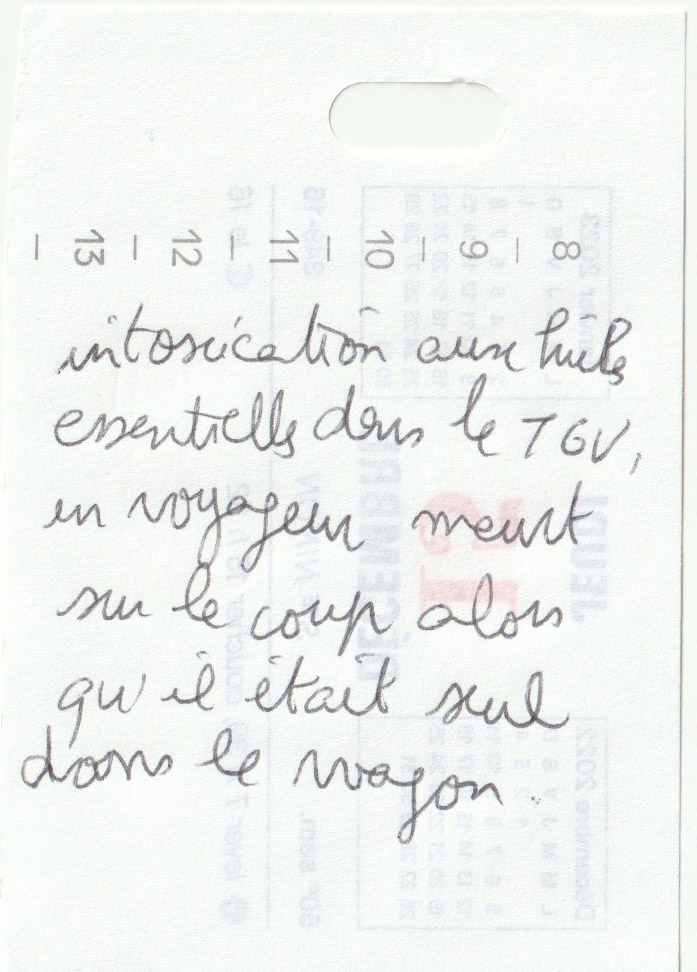 – 13 – 12 – 11 – 10 – 9 – 8
intoxication aux huiles
essentielles dans le TGV,
un voyageur meurt
sur le coup alors
qu'il était seul
dans le wagon.